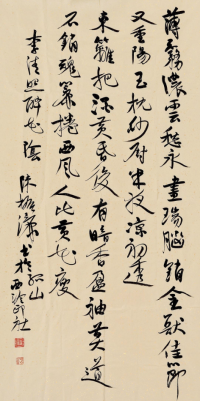 薄霧濃雲愁永晝瑞腦銷金獸佳節
又重陽玉枕紗厨半夜涼初透
東籬把酒黃昏後有暗香盈袖莫道
不銷魂簾捲西風人比黃花瘦
李清照醉花陰 陳振濂書於孤山西泠印社